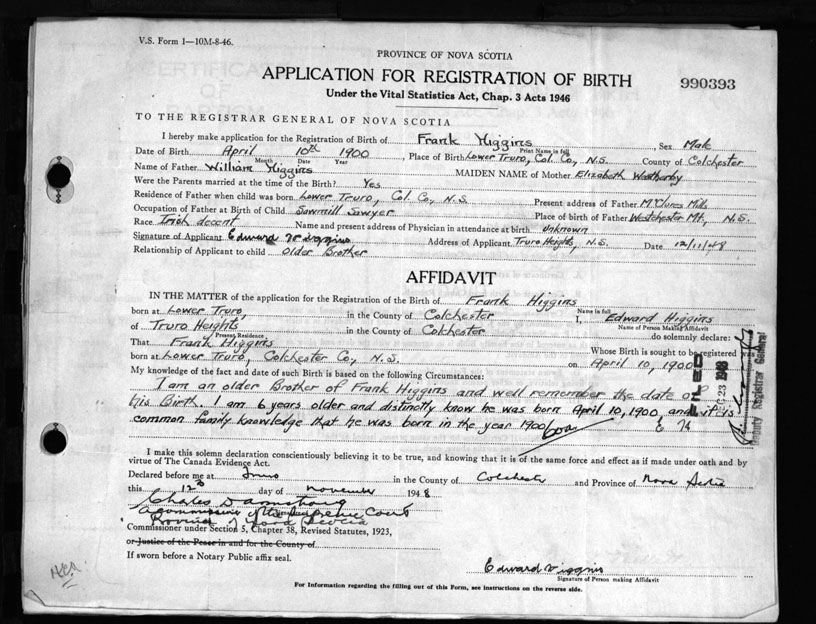 V.S. Form 1—10M-8-46.
PROVINCE OF NOVA SCOTIA
APPLICATION FOR REGISTRATION OF BIRTH
990393
Under the Vital Statistics Act, Chap. 3 Acts 1946
TO THE REGISTRAR GENERAL OF NOVA SCOTIA
I hereby make application for the Registration of Birth of Frank Higgins, Sex Male
Print Name in full
Date of Birth April 10th 1900, Place of Birth Lower Truro, Col. Co., N.S. County of Colchester
Month Date Year
Name of Father William Higgins MAIDEN NAME of Mother Elizabeth Weatherby
Were the Parents married at the time of the Birth? Yes
Residence of Father when child was born Lower Truro, Col. Co., N.S. Present address of Father McClures Mills
Occupation of Father at Birth of Child Sawmill Sawyer Place of birth of Father Westchester Mt., N.S.
Race Irish decent Name and present address of Physician in attendance at birth unknown
Signature of Applicant Edward Higgins Address of Applicant Truro Heights, N.S. Date 12/11/48
Relationship of Applicant to child Older Brother
AFFIDAVIT
IN THE MATTER of the application for the Registration of the Birth of Frank Higgins
Name in full
born at Lower Truro, in the County of Colchester I, Edward Higgins
Name of Person Making Affidavit
of Truro Heights in the County of Colchester do solemnly declare:
Present Residence
That Frank Higgins Whose Birth is sought to be registered was
born at Lower Truro, Colchester Co., N.S. on April 10, 1900
My knowledge of the fact and date of such Birth is based on the following Circumstances:
I am an older Brother of Frank Higgins and well remember the date of
his Birth. I am 6 years older and distinctly know he was born April 10, 1900, and it is
common family knowledge that he was born in the year 1900
FILED
DEC 23 1948
Deputy Registrar General
I make this solemn declaration conscientiously believing it to be true, and knowing that it is of the same force and effect as if made under oath and by
virtue of The Canada Evidence Act.
Declared before me at Truro in the County of Colchester and Province of Nova Scotia
this 12th day of November 1948
Charles D Armstrong
A Commissioner of the Supreme Court
Province of Nova Scotia
Commissioner under Section 5, Chapter 38, Revised Statutes, 1923,
or Justice of the Peace in and for the County of
If sworn before a Notary Public affix seal.
Edward Higgins
Signature of Person making Affidavit
For Information regarding the filling out of this Form, see instructions on the reverse side.